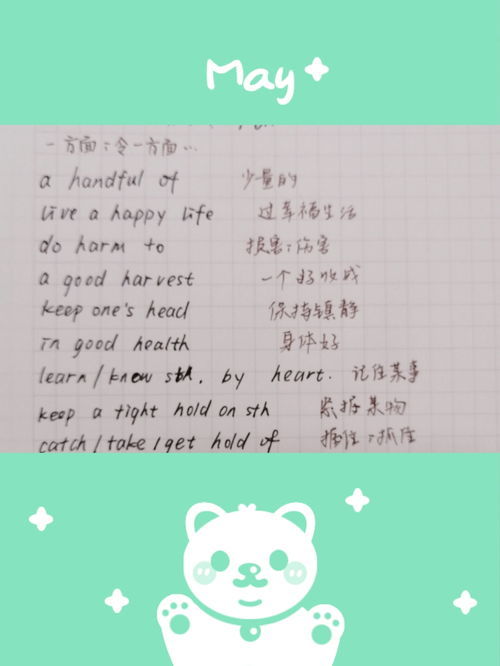 May
一方面;令一方面…
a handful of 少量的
live a happy life 过幸福生活
do harm to 损害;伤害
a good harvest 一个好收成
keep one's head 保持镇静
in good health 身体好
learn/know sth. by heart. 记住某事
keep a tight hold on sth 紧握某物
catch/take/get hold of 抓住